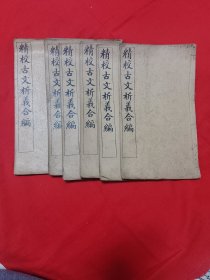 精校古文析義合編
精校古文析義合編
精校古文析義合編
精校古文析義合編
精校古文析義合編
精校古文析義合編